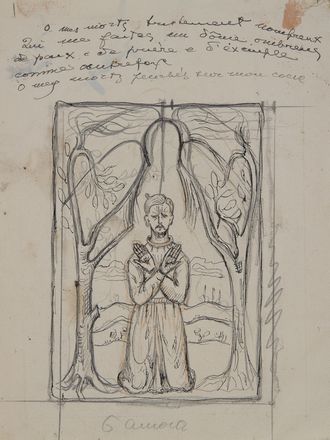 O mes morts tristement nombreux
Qui me faites un dôme ombreux
de paix, de prière e d'exemple
comme autrefois
O mes morts penchés sur mon coeur
6 amour